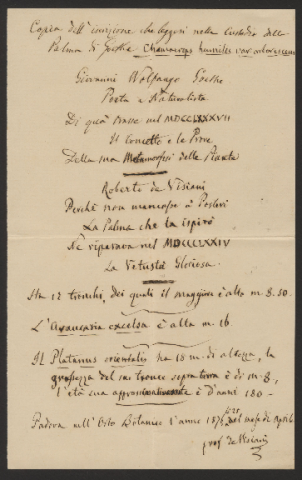 Copia dell' iscrizione che leggesi nella Custodia della
Palma di Goethe Chamaerops humilis var. arborescens
Giovanni Wolfango Goethe
Poeta e Naturalista
Di quà trasse nel MDCCLXXXVII
Il Concetto e le Prove
Della sua Metamorfosi delle Piante
Roberto de Visiani
Perchè non mancasse à Posteri
La Palma che la ispirò
Ne riparava nel MDCCCLXXIV
La Vetustà Gloriosa.
Ha 12 tronchi, dei quali il maggiore è alto m. 8.50.
L'Araucaria excelsa è alta m. 16.
Il Platanus orientalis ha 18 m. di altezza, la
grossezza del suo tronco sopra terra è di m. 8,
l'età sua approssimativamente è d'anni 180 –
Padova nell'Orto Botanico l'anno 187 nel mese di Aprile
prof. de Visiani